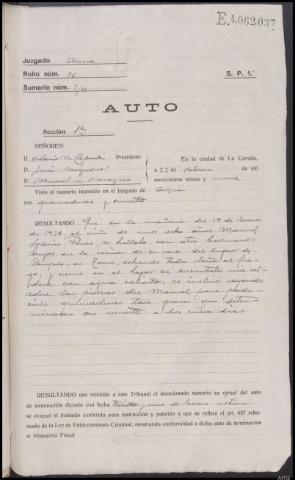 E.4.062.037
Juzgado Arzua
Rollo núm.
Sumario núm.
S. P. 1.ª
AUTO
Sección 1ª
SEÑORES:
D. Presidente
D.
D. Manuel
En la ciudad de La Coruña,
a 22 de febrero de mil
novecientos treinta y nueve
Visto el sumario instruido en el Juzgado de Arzua
por quemaduras y muerte
RESULTANDO Que en la mañana del 1º de enero
de 1939, el niño de unos ocho años Manuel
Iglesias se hallaba con otros hermanos
en la cocina de su casa del lugar de
todos junto al fue-
go, y como en el hogar se encontraba una cal-
dera con agua caliente, se cayendo
sobre las piernas de Manuel
quemaduras tan graves que deter-
minaron su muerte a los cinco días
RESULTANDO que remitido a este Tribunal el mencionado sumario en virtud del auto
de terminación dictado con fecha treinta y uno de enero último
se evacuó el traslado conferido para instrucción y petición a que se refiere el art. 627 refor-
mado de la Ley de Enjuiciamiento Criminal, mostrando conformidad a dicho auto de terminación
el Ministerio Fiscal